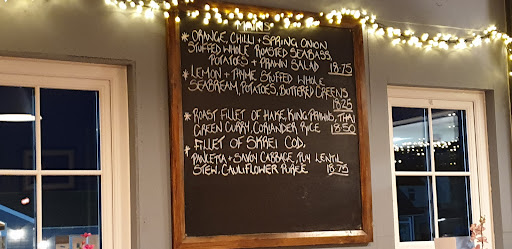 MAINS
* ORANGE, CHILLI + SPRING ONION
STUFFED WHOLE ROASTED SEABASS,
POTATOES + PRAWN SALAD 18.75
* LEMON + THYME STUFFED WHOLE
SEABREAM, POTATOES, BUTTERED GREENS
18.25
* ROAST FILLET OF HAKE, KING PRAWNS, THAI
GREEN CURRY, CORIANDER RICE 18.50
* FILLET OF SKREI COD,
PANCETTA + SAVOY CABBAGE, PUY LENTIL
STEW, CAULIFLOWER PUREE 18.75